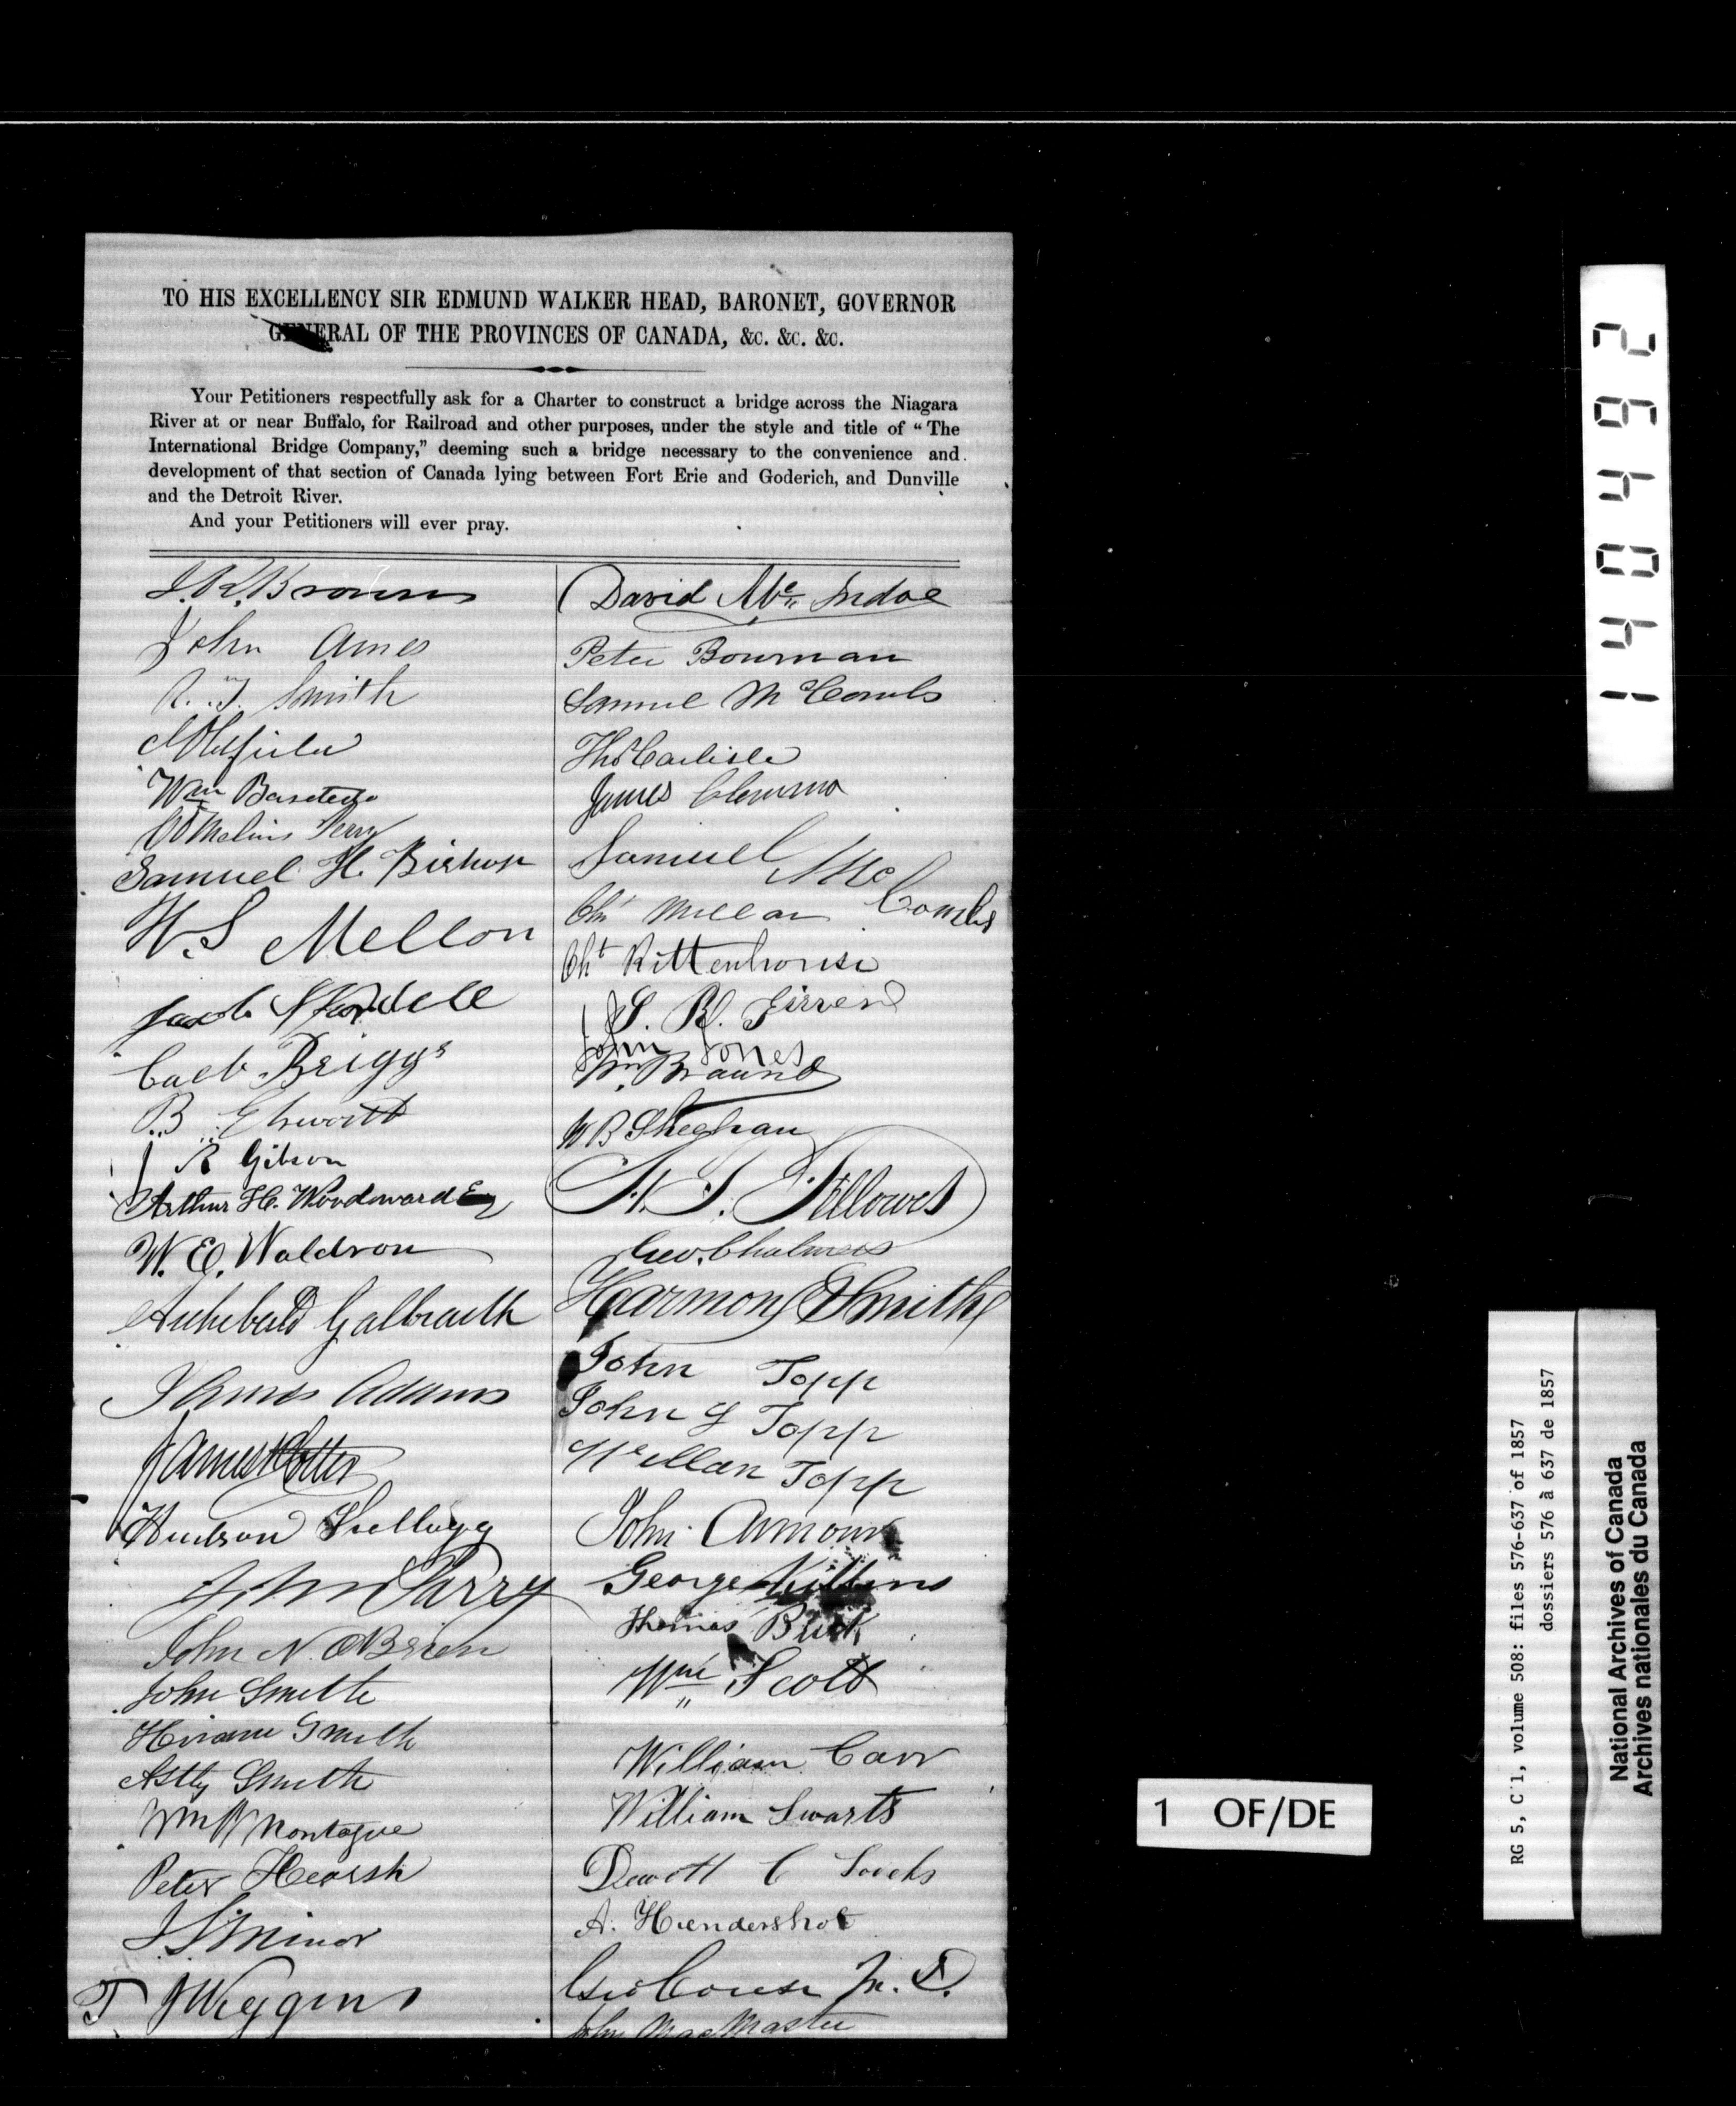 TO HIS EXCELLENCY SIR EDMUND WALKER HEAD, BARONET, GOVERNOR
GENERAL OF THE PROVINCES OF CANADA, &C. &C. &C.
Your Petitioners respectfully ask for a Charter to construct a bridge across the Niagara
River at or near Buffalo, for Railroad and other purposes, under the style and title of “The
International Bridge Company,” deeming such a bridge necessary to the convenience and
development of that section of Canada lying between Fort Erie and Goderich, and Dunville
and the Detroit River.
And your Petitioners will ever pray.
J. R. Brown
John Ames
Smith
Wm
Perry
Samuel H. Bishop
W. S Mellon
Jacob
Briggs
B
J R Gibson
Arthur H. Woodward Esq
W. E. Waldron
Archebald Galbraith
James Adams
James Potter
Hudson Kellogg
Parry
John N. OBrien
John Smith
Hiram Smith
Astly Smith
Wm Montague
Peter Hearsh
J. S. Minor
T J Wiggins
David Mc Indoe
Peter Bowman
Samuel McCombs
Thos Carlisle
James Clemmo
Samuel Mc
Combs
Millar
Rittenhouse
S. B.
John Jones
Wm. Braund
W B
Fellows
Geo. Chalmers
Harmon Smith
John Topp
John G Topp
Topp
John Armour
George
Thomas
Wm Scott
William Carr
William Swarts
Dewitt C
A. Hendershot
Geo M. D.
John MacMaster
140492
1 OF/DE
RG 5, C 1, volume 508: files 576-637 of 1857
dossiers 576 à 637 de 1857
National Archives of Canada
Archives nationales du Canada